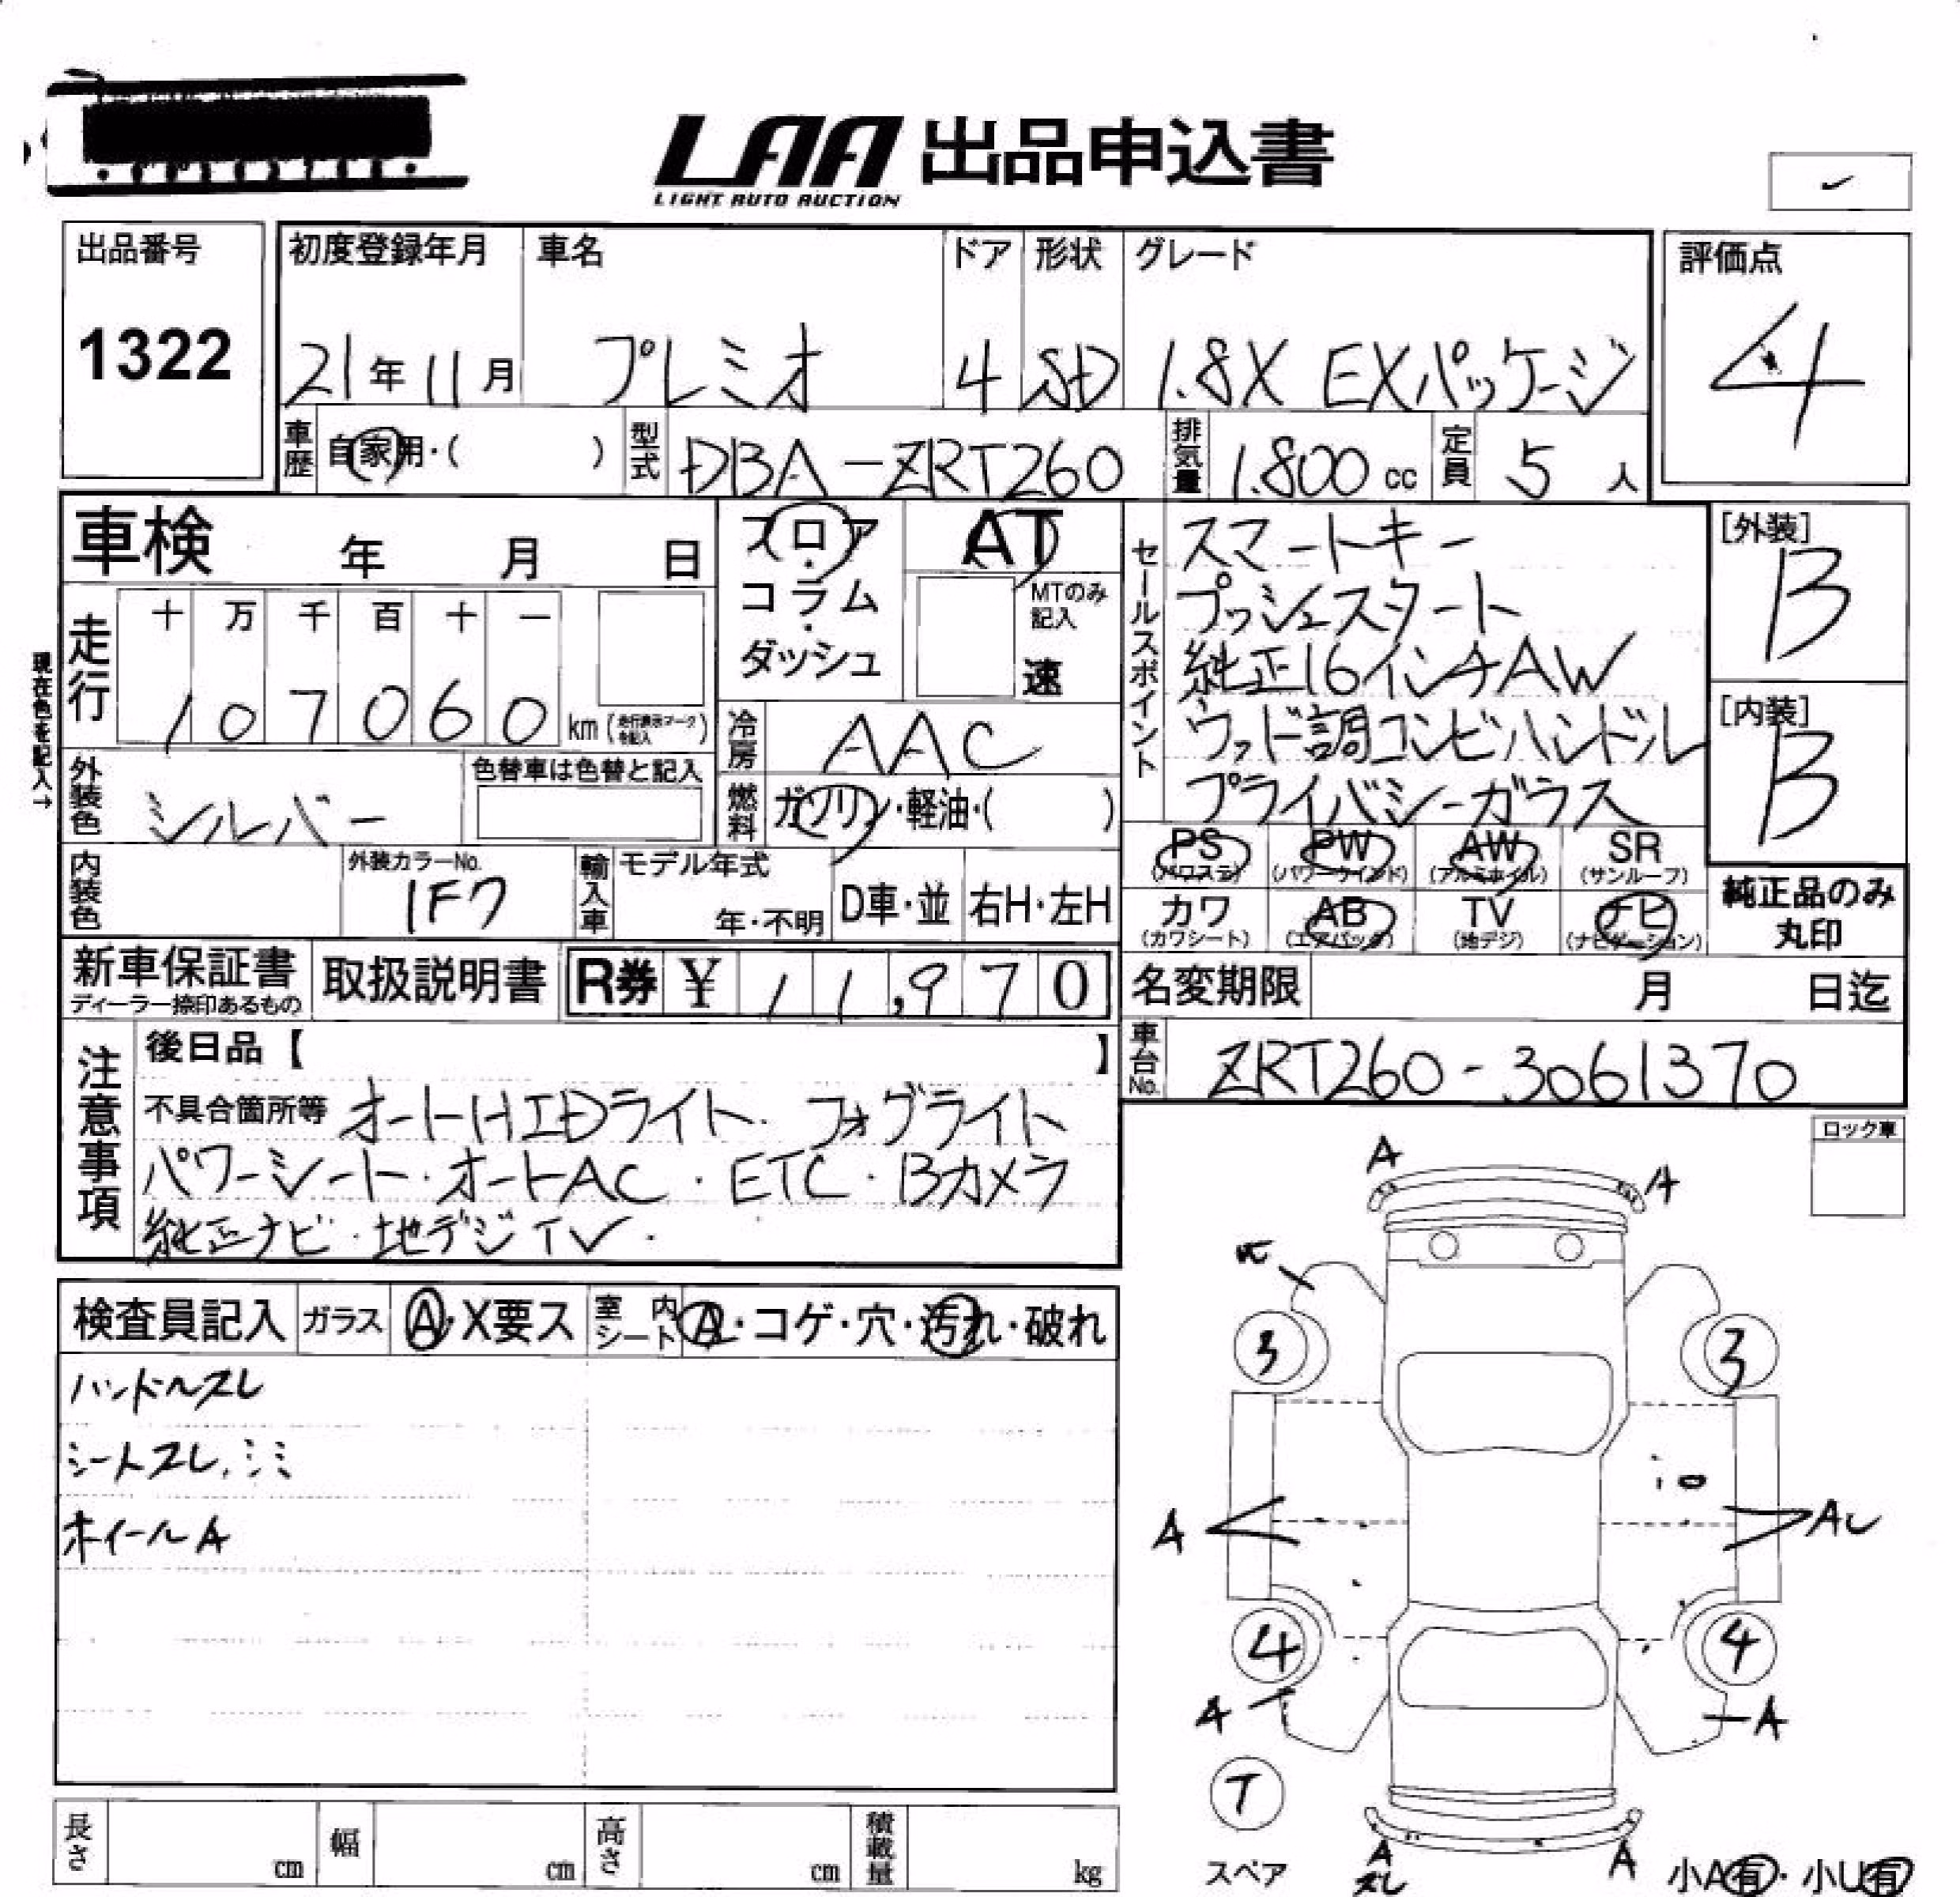 LAA 出品申込書
LIGHT AUTO AUCTION
出品番号
1322
初度登録年月
21年11月
車名
プレミオ
ドア
4
形状
SD
グレード
1.8X EXパッケージ
評価点
4
車歴
自家用・( )
型式
DBA-ZRT260
排気量
1.800 cc
定員
5人
車検 年 月 日
フロア
・
コラム
・
ダッシュ
AT
MTのみ
記入
速
セールスポイント
スマートキー
プッシュスタート
純正16インチAW
ウッド調コンビハンドル
プライバシーガラス
[外装]
B
[内装]
B
現在色を記入→
走行
十 万 千 百 十 一
107060 km (走行表示マークを記入)
冷房
AAC
外装色
シルバー
色替車は色替と記入
燃料
ガソリン・軽油・( )
PS (パワステ)
PW (パワーウインド)
AW (アルミホイル)
SR (サンルーフ)
カワ (カワシート)
AB (エアバッグ)
TV (地デジ)
ナビ (ナビゲーション)
純正品のみ
丸印
内装色
外装カラーNo.
1F7
輸入車
モデル年式
年・不明
D車・並
右H・左H
新車保証書
ディーラー捺印あるもの
取扱説明書
R券 ¥ 11,970
名変期限 月 日迄
車台No.
ZRT260-3061370
注意事項
後日品【 】
不具合箇所等 オートHIDライト・フォグライト
パワーシート・オートAC・ETC・Bカメラ
純正ナビ・地デジTV.
ロック車
検査員記入
ガラス
A・X要ス
室内シート
・コゲ・穴・汚れ・破れ
ハンドルスレ
シートスレ,シミ
ホイールA
A
A
3
3
A
AU
4
4
A
A
T
スペア
A
スレ
A
小A有・小U有
長さ cm
幅 cm
高さ cm
積載量 kg